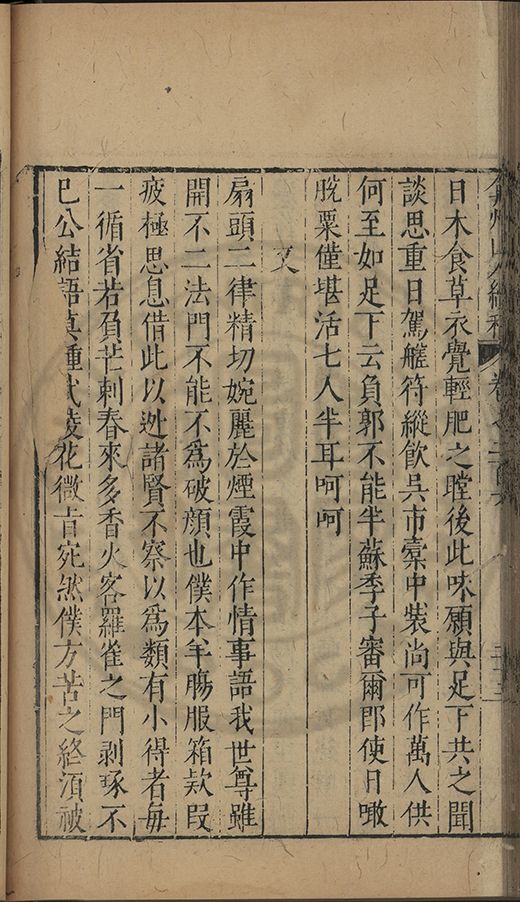 弇州山人續稿 卷之二百六 二十三
日木食草衣覺輕肥之膛後此味願與足下共之聞
談思重日駕艖符縱飲吳市槖中裝尚可作萬人供
何至如足下云負郭不能半蘇季子審爾即使日噉
脫粟僅堪活七人半耳呵呵
又
扇頭二律精切婉麗於煙霞中作情事語我世尊雖
開不二法門不能不為破顔也僕本羊膓服箱欵段
疲極思息借此以迯諸賢不察以為類有小得者毎
一循省若負芒刺春來多香火客羅雀之門剥琢不
已公結語真種武陵花微旨宛然僕方苦之終須被